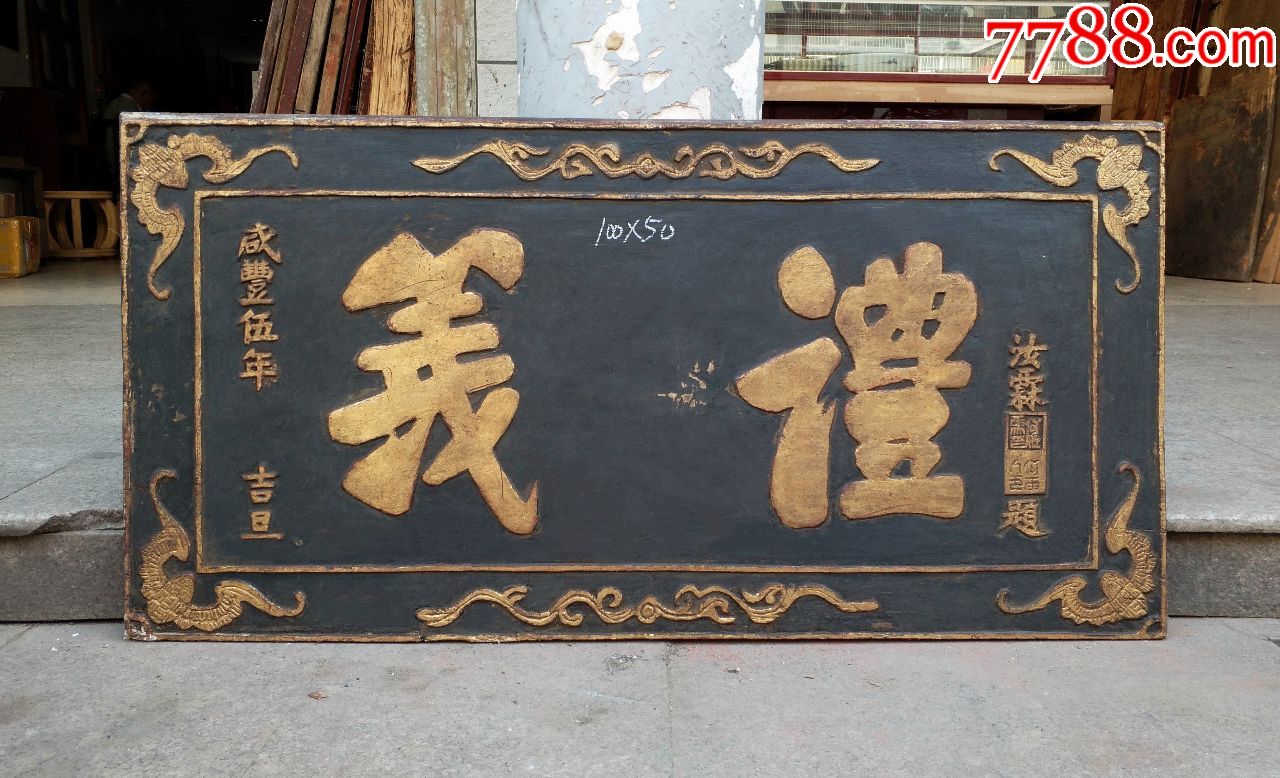 7788.com
100X50
禮義
汝霖
題
咸豐伍年
吉旦